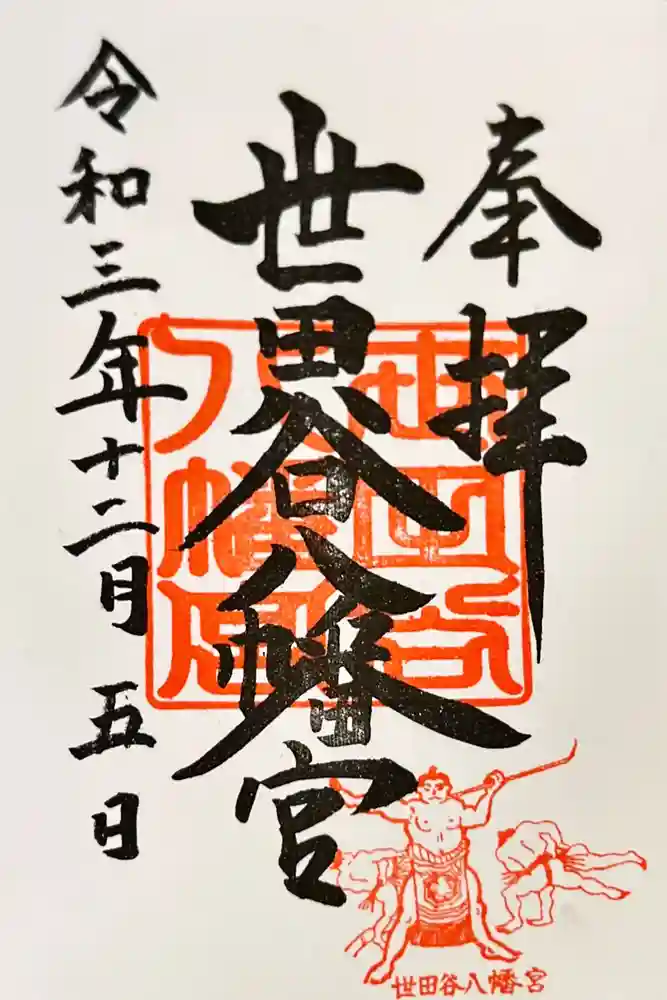 奉拝
世田谷八幡宮
令和三年十二月五日
世田谷
八幡宮
世田谷八幡宮